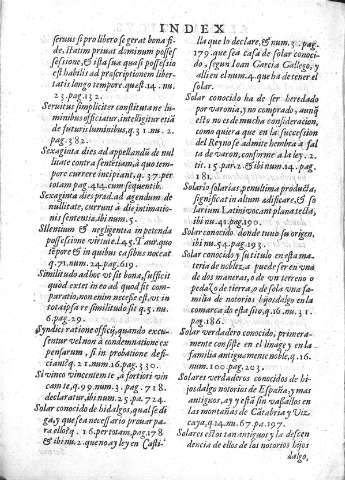 INDEX
seruus si pro libero se gerat bona fi-
de, statim priuat dominum posses
sessione, & ista sua quasi possessio
est habilis ad præscriptionem liber-
tatis longo tempore. quæst. 14. nu.
23. pag. 132.
Seruitus simpliciter constituta ne lu-
minibus officiatur, intelligitur etiã
de futuris luminibus, q. 31. nu. 2.
pag. 382.
Sexaginta dies ad appellandũ de nul
litate contra sententiam, à quo tem-
pore currere incipiant, q. 37. per
totam pag. 414. cum sequentib.
Sexaginta dies prad. ad agendum de
nullitate, currunt à die intimatio-
nis sententiæ ibi num. 5.
Silentium & negligentia in petenda
possessione virtute l. 45. Taur. quo
tepore & in quibus casibus noceat
q. 71. num. 24. pag. 619.
Similitudo ad hoc vt sit bona, sufficit
quòd extet in eo ad quod sit com-
paratio, non enim necesse est, vt in
tota ipsa re similitudo sit q. 5. nu.
6. pag. 29.
Syndici ratione officij, quando excu-
sentur vel non à condemnatione ex
pensarum, si in probatione defi-
ciant? q. 21. num. 16. pag. 330.
Si vinco vincentem te, à fortiori vin
cam te, q. 99. num. 3. pag. 718.
declaratur, ibi num. 25. pa. 724.
Solar conocido de hidalgos, qual se di
ga, y que sea necessario prouar pa
ra ello? q. 16. per totam, pag. 178
& ibi nu. 2. que no ay ley en Casti-
lla que lo declare, & num. 3. pag.
179. que sea casa de solar conoci-
do, segun Ioan Garcia Gallego, y
alli en el num. 4. que ha de tener el
solar.
Solar conocido ha de ser heredado
por varonia, y no comprado, aunq̃
esto no es de mucha consideracion,
como quiera que en la succession
del Reyno se admite hembra à fal
ta de varon, conforme a la ley. 2.
tit. 15. par. 2. & ibi num. 14. pag.
181.
Solario solarias, penultima producta,
significat in altum ædificare, & so
larium Latini vocant planæ tecta,
ibi nu. 43. pag. 190.
Solar conocido donde tuuo su origen,
ibi nu. 54. pag. 193.
Solar conocido y su titulo en esta ma
teria de nobleza puede ser en vna
de dos maneras, o de vn terreno o
pedaço de tierra, o de sola vna fa-
milia de notorios hijosdalgo en la
comarca do esta sito, q. 16. nu. 31.
pag. 186.
Solar verdadero conocido, primera-
mente consiste en el linage y en la
familia antiguamente noble, q. 16.
num. 100. pag. 203.
Solares verdaderos conocidos de hi-
josdalgo notorios de España, y mas
antiguos, ay y está sin vasallos en
las montañas de Cãtabria y Viz-
caya, q. 14. nu. 67. pa. 197.
Solares estos tan antiguos y la descen
dencia de ellos de los notorios hijos
dalgo,